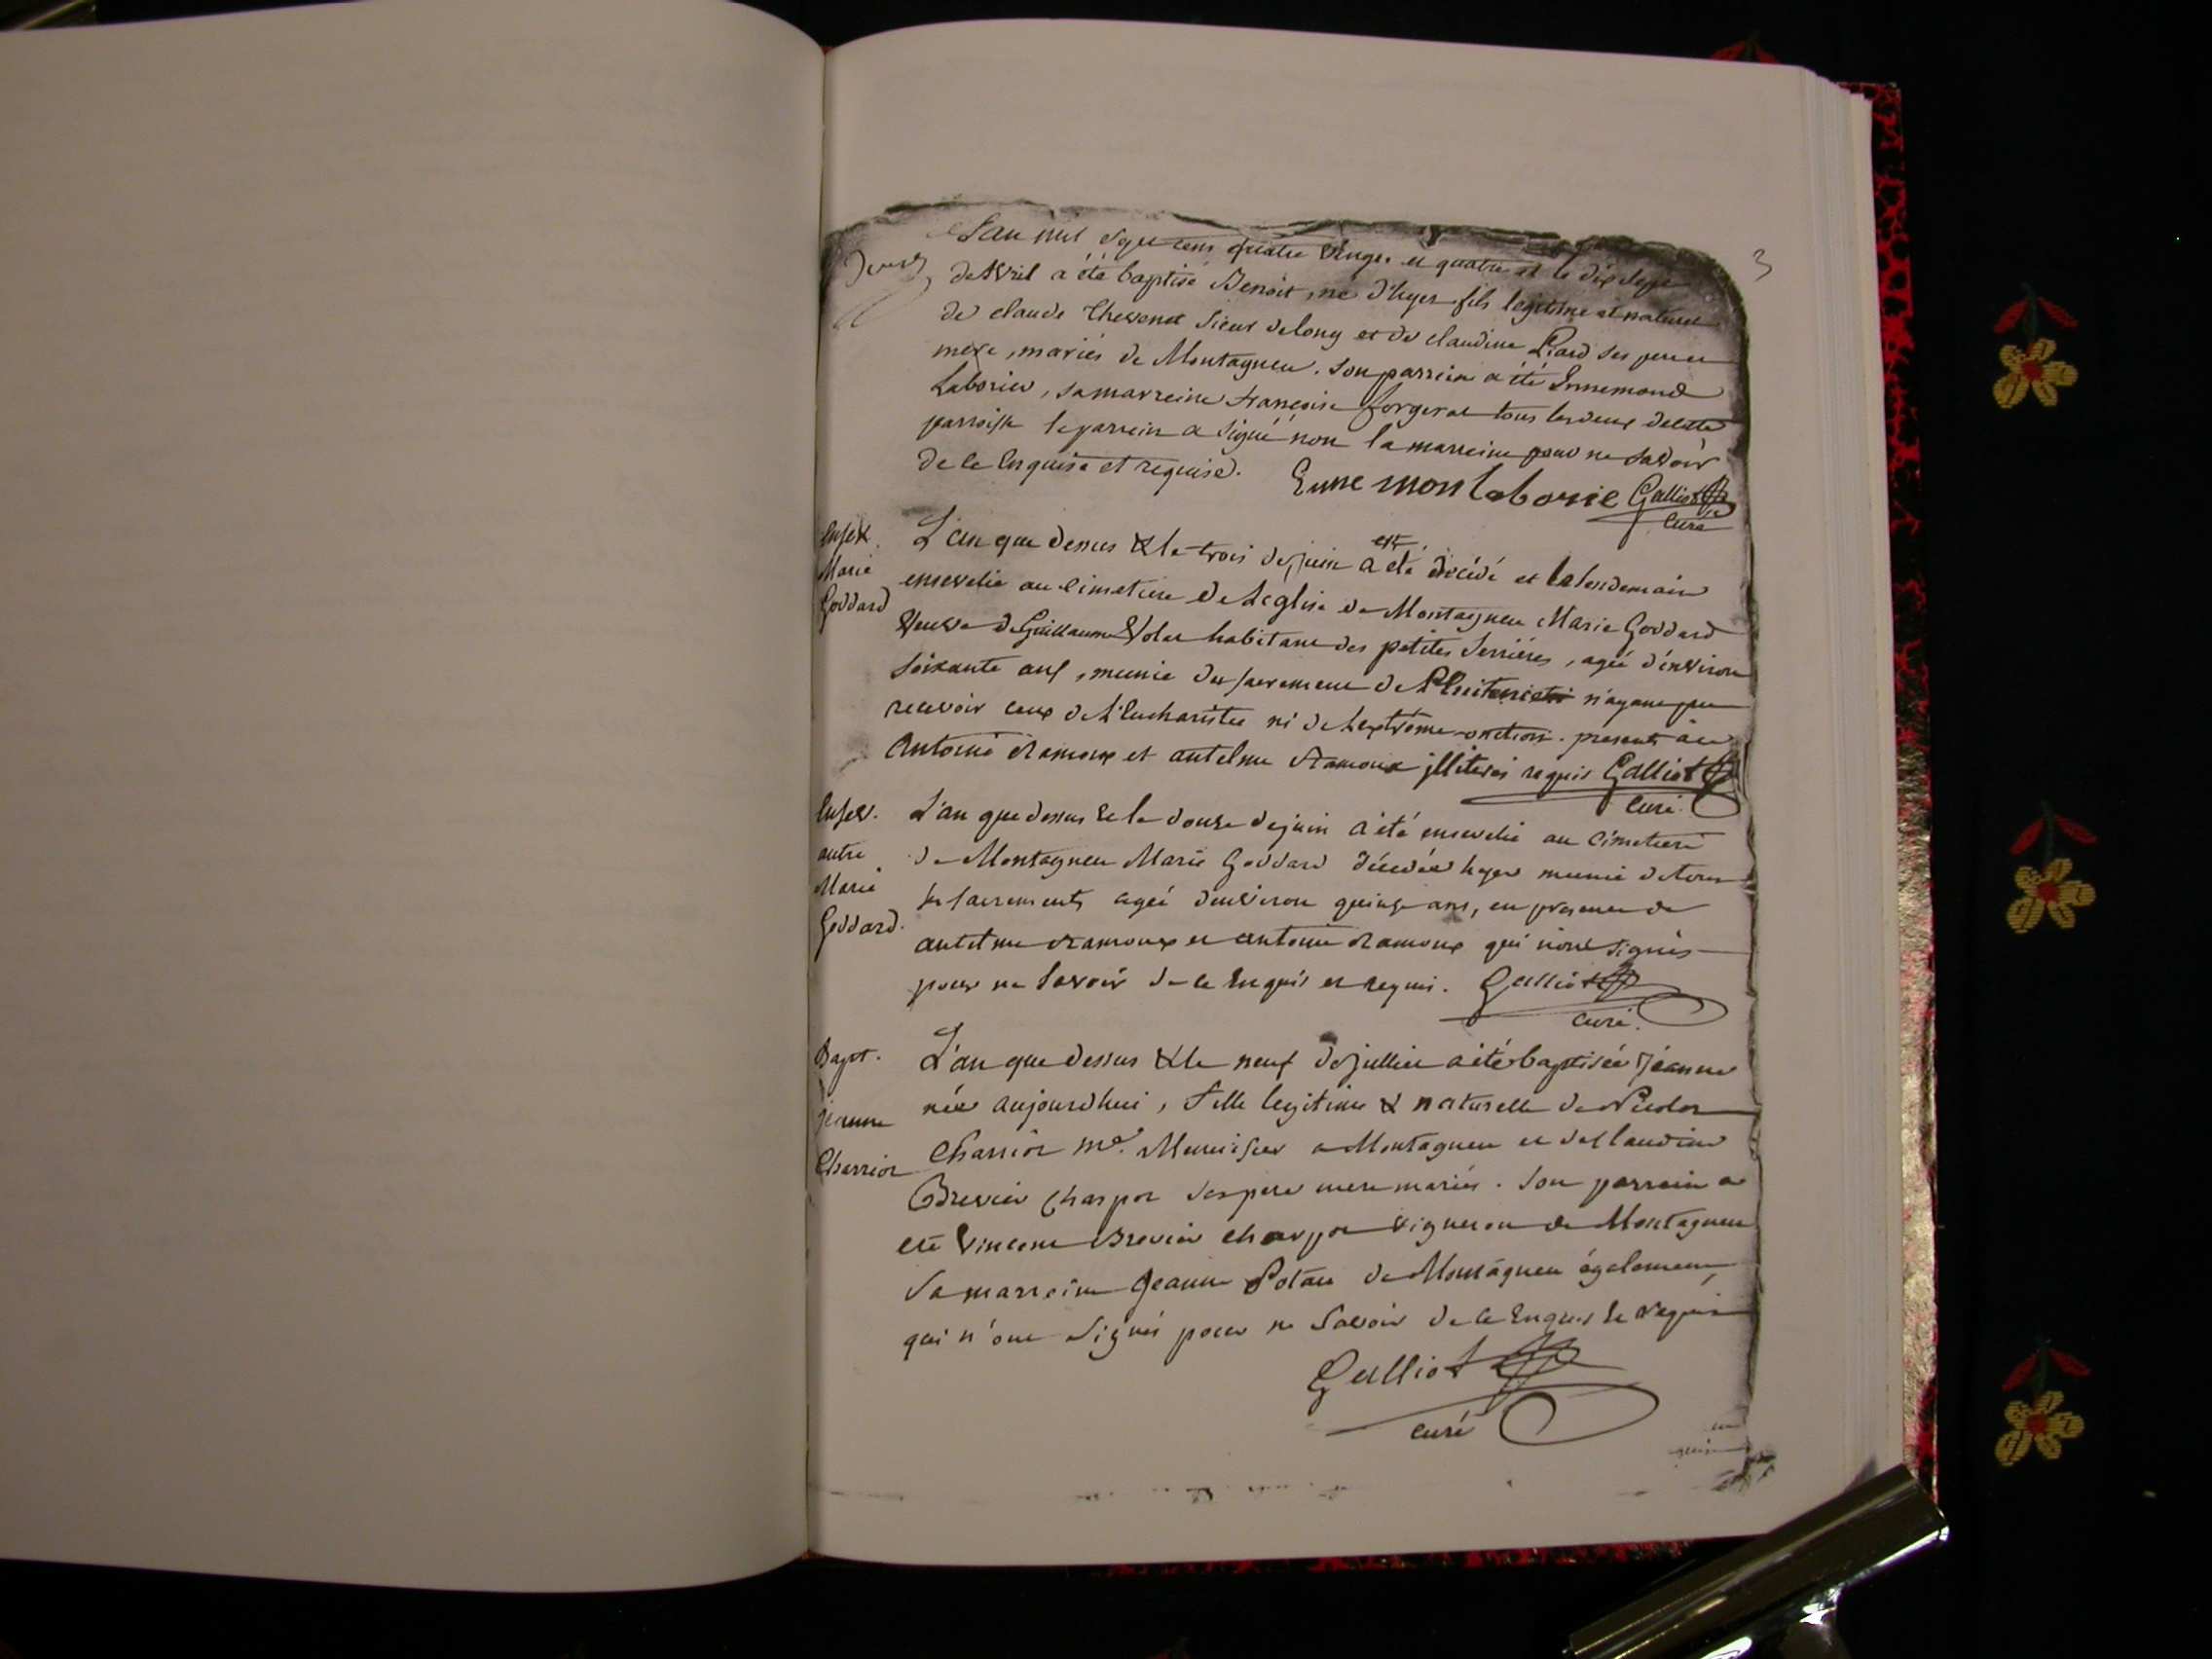 3
L'an mil sept cens quatre vingt et quatre et le dix sept
d'avril a été baptisé Benoit, né d'hyer fils legitime et naturel
de claude Thevenet Sieur delong et de claudine Liard ses pere et
mere, mariés de Montagneu. Son parrein a été Ennemond
Laborier, sa marreine françoise forgeral tous les deux de cette
parroisse le parrein a signé non la marreine pour ne savoir
de ce enquise et requise. Enne mon laborie Galliot
curé
Ensev.
Marie
Goddard
L'an que dessus & le trois de juin a été est décédé et le lendemain
ensevelie au cimetiere de l'eglise de Montagneu Marie Goddard
veuve de Guillaume Volet habitant des petites Serrières, agée d'environ
soixante ans, munie du sacrement de Penitence n'ayant pu
recevoir ceux de l'Eucharistie ni de l'extrême-onction. presents à ce
Antoine Ramoux et antelme Ramoux illiterés requis Galliot
curé.
Ensev.
autre
Marie
Goddard.
L'an que dessus & le douze de juin a été ensevelie au cimetiere
de Montagneu Marie Goddard décédée hyer munie de tous
les sacrements agée d'environ quinze ans, en presence de
antelme Ramoux et antoine Ramoux qui n'ont signés
pour ne savoir de ce enquis et requis. Galliot
curé.
Bapt.
jeanne
Charrior
L'an que dessus & le neuf de juillet a été baptisée Jeanne
née aujourdhui, fille legitime & naturelle de
Charrior me. Menuisier a Montagneu et de Claudine
Brevier Charpor ses pere mere mariés. Son parrein a
été Vincent Brevier charpor vigneron de Montagneu
sa marreine Jeanne de Montagneu également,
qui n'ont signés pour ne savoir de ce enquis & requis
Galliot
curé